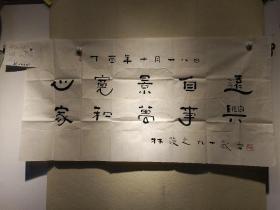 丁酉年十月十八日
心寬景自遠
家和萬事興
林筱之九十歲書